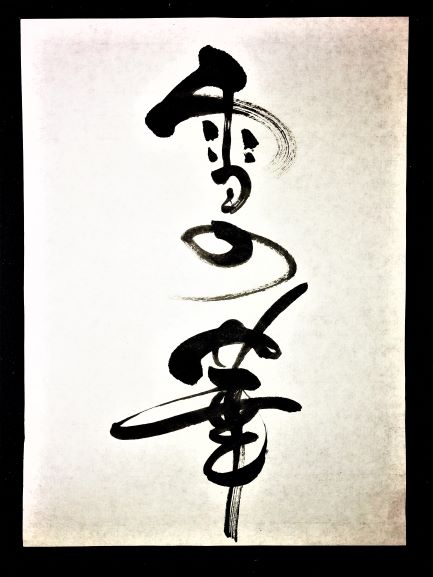 雪の華